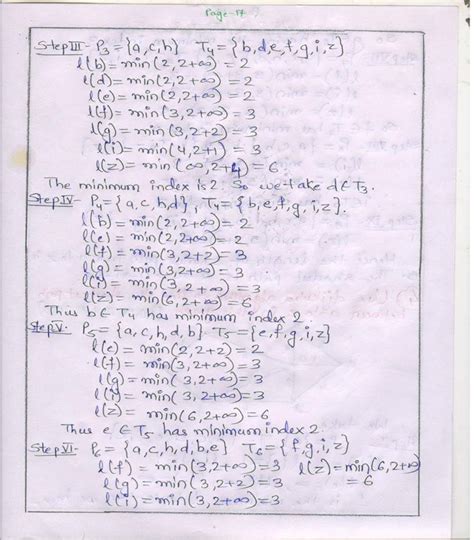 Page-17
Step III- P3={a,c,h} T4={b,d,e,f,g,i,z}
l(b)=min(2,2+∞)=2
l(d)=min(2,2+∞)=2
l(e)=min(2,2+∞)=2
l(f)=min(3,2+∞)=3
l(g)=min(3,2+2)=3
l(i)=min(4,2+1)=3
l(z)=min(∞,2+4)=6
The minimum index is 2. So we take d∈T3.
Step IV- P4={a,c,h,d}, T4={b,e,f,g,i,z}.
l(b)=min(2,2+∞)=2
l(e)=min(2,2+∞)=2
l(f)=min(3,2+2)=3
l(g)=min(3,2+∞)=3
l(i)=min(3,2+∞)=3
l(z)=min(6,2+∞)=6
Thus b∈T4 has minimum index 2.
Step V- P5={a,c,h,d,b} T5={e,f,g,i,z}
l(e)=min(2,2+2)=2
l(f)=min(3,2+∞)=3
l(g)=min(3,2+∞)=3
l(i)=min(3,2+∞)=3
l(z)=min(6,2+∞)=6
Thus e∈T5 has minimum index 2.
Step VI- P6={a,c,h,d,b,e} T6={f,g,i,z}
l(f)=min(3,2+∞)=3 l(z)=min(6,2+∞)
l(g)=min(3,2+2)=3 =6
l(i)=min(3,2+∞)=3